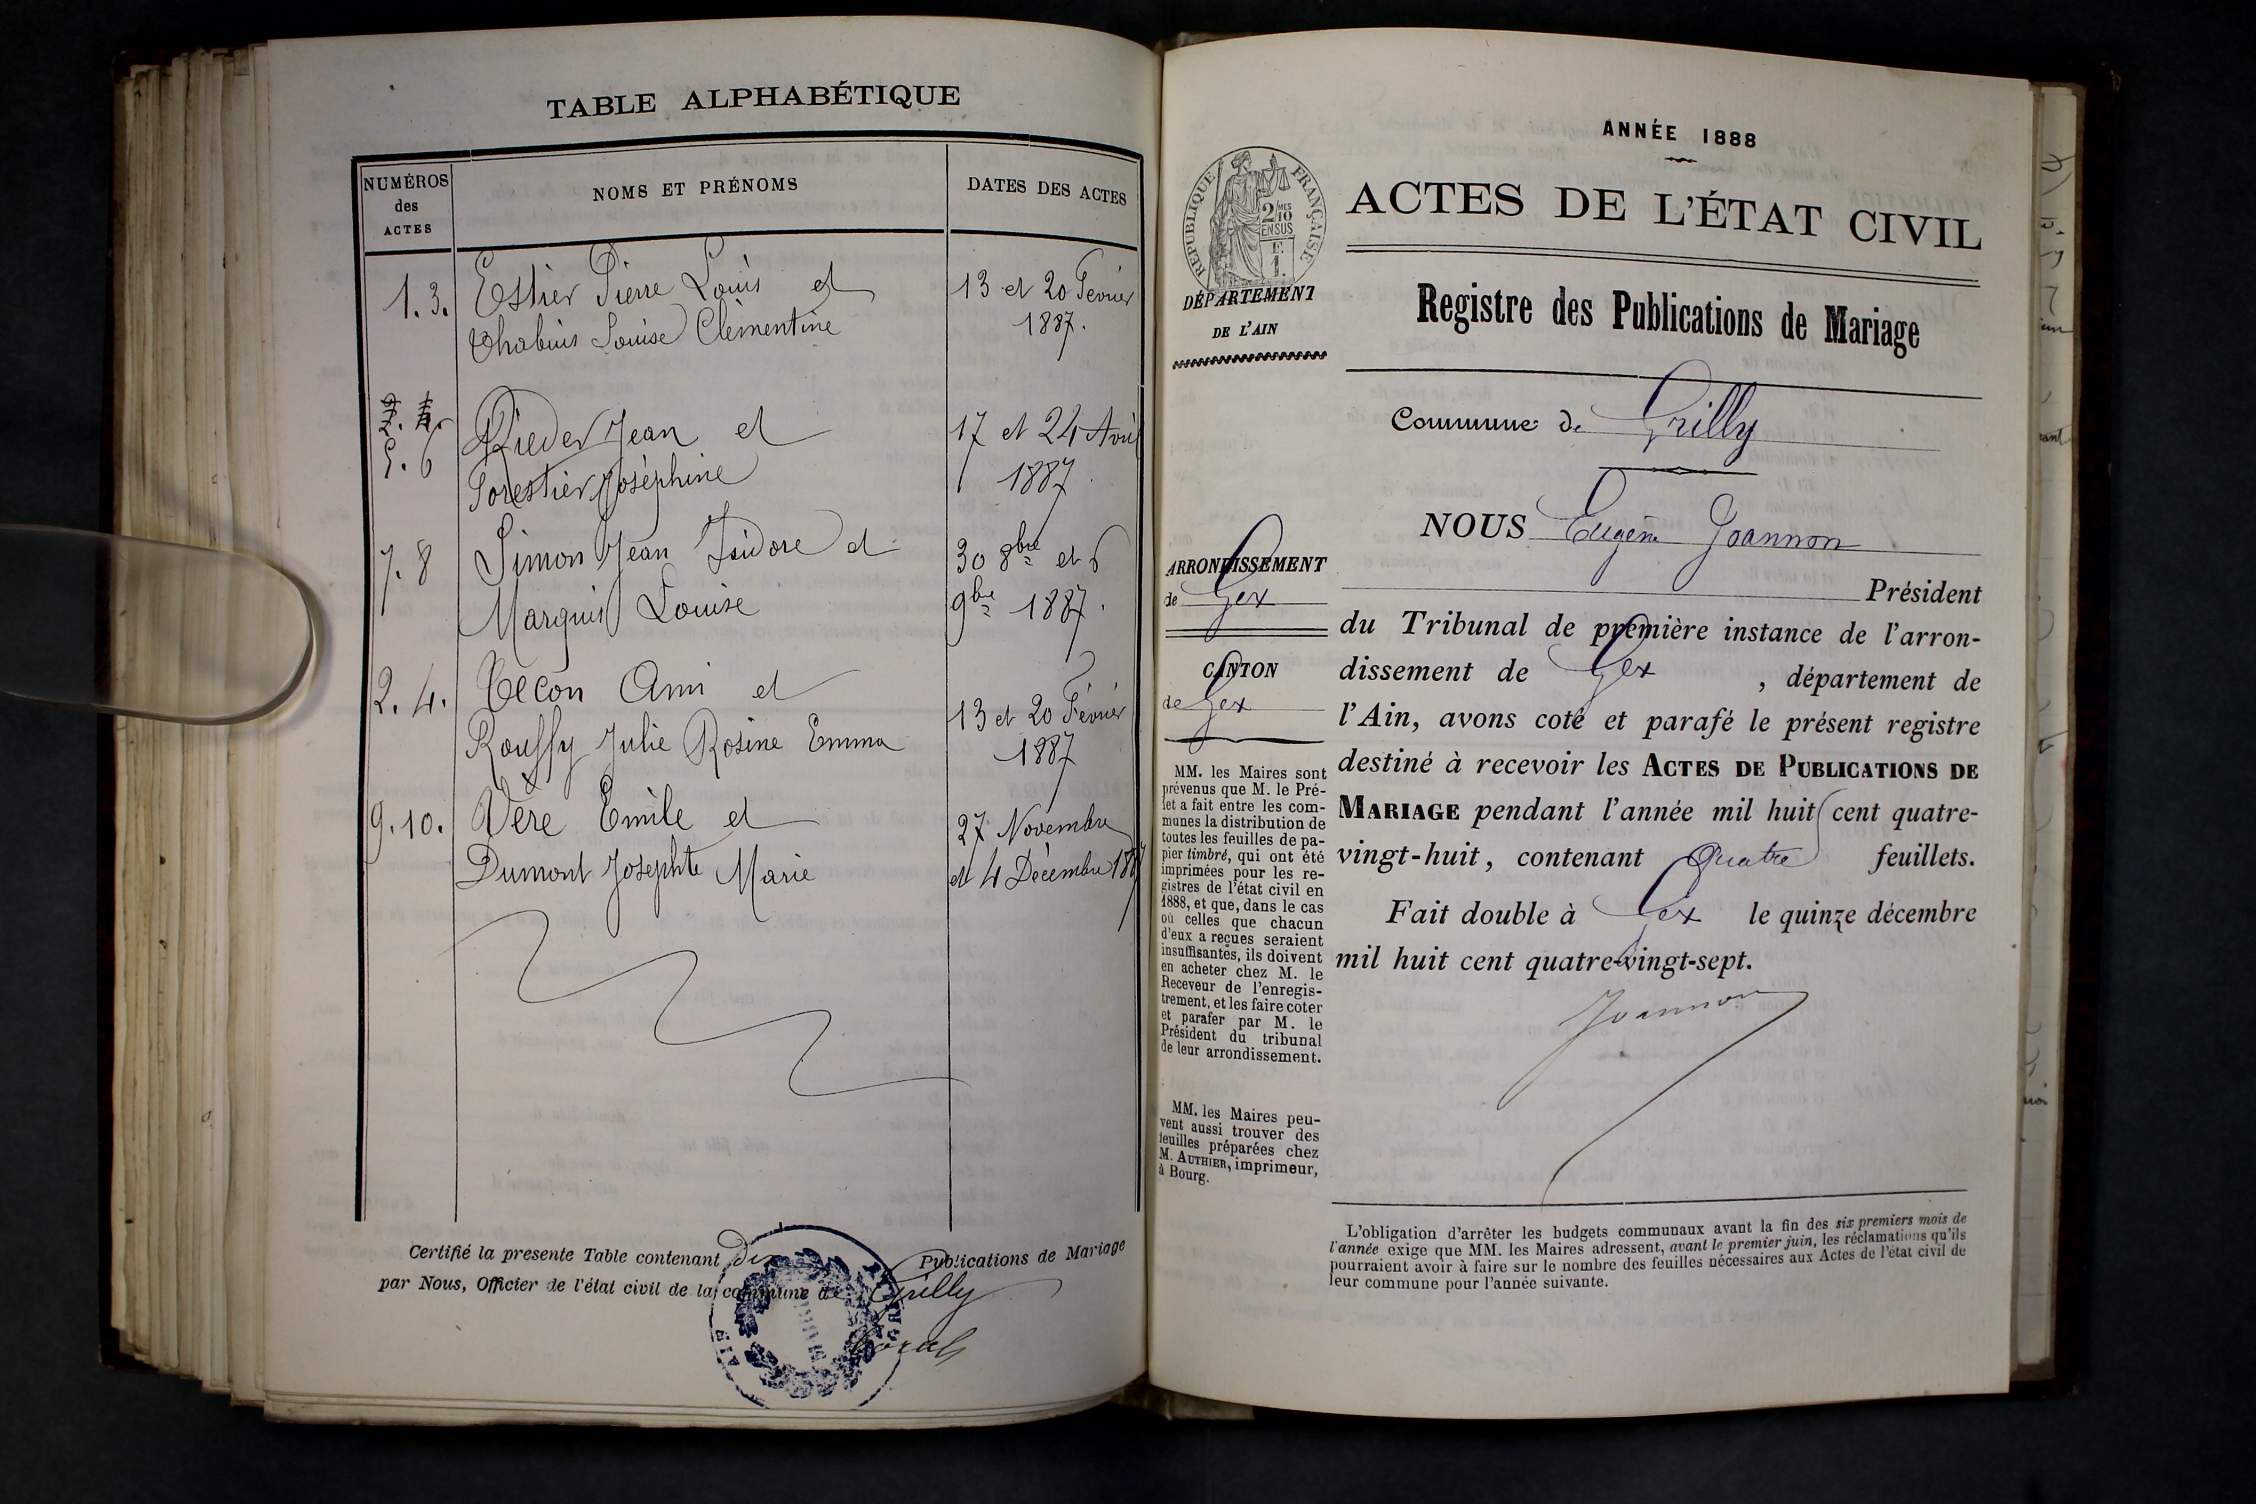 TABLE ALPHABÉTIQUE
NUMÉROS des ACTES
NOMS ET PRÉNOMS
DATES DES ACTES
1. 3. Estier Pierre Louis et 13 et 20 Fevrier
Chabuis Louise Clèmentine 1887.
5. 6 Rieder Jean et 17 et 24 Avril
Forestier Joséphine 1887
7. 8 Simon Jean Isidore et 30 8bre et 6
Marquis Louise 9bre 1887.
2. 4. Tecon Ami et 13 et 20 Février
Rouffy Julie Rosine Emma 1887
9. 10. Vère Emile et 27 Novembre
Dumont Josephte Marie et 4 Décembre 1887
Certifié la presente Table contenant Dix Publications de Mariage
par Nous, Officier de l'état civil de la commune de Grilly
AIN
ANNÉE 1888
RÉPUBLIQUE FRANÇAISE
2/10 MES
EN SUS
F.
1.
ACTES DE L'ÉTAT CIVIL
DÉPARTEMENT
DE L'AIN
Registre des Publications de Mariage
Commune de Grilly
ARRONDISSEMENT
de Gex
CANTON
de Gex
MM. les Maires sont
prévenus que M. le Pré-
fet a fait entre les com-
munes la distribution de
toutes les feuilles de pa-
pier timbré, qui ont été
imprimées pour les re-
gistres de l'état civil en
1888, et que, dans le cas
où celles que chacun
d'eux a reçues seraient
insuffisantes, ils doivent
en acheter chez M. le
Receveur de l'enregis-
trement, et les faire coter
et parafer par M. le
Président du tribunal
de leur arrondissement.
MM. les Maires peu-
vent aussi trouver des
feuilles préparées chez
M. AUTHIER, imprimeur,
à Bourg.
NOUS Eugène Joannon
Président
du Tribunal de première instance de l'arron-
dissement de Gex, département de
l'Ain, avons coté et parafé le présent registre
destiné à recevoir les ACTES DE PUBLICATIONS DE
MARIAGE pendant l'année mil huit cent quatre-
vingt-huit, contenant Quatre feuillets.
Fait double à Gex le quinze décembre
mil huit cent quatre-vingt-sept.
Joannon
L'obligation d'arrêter les budgets communaux avant la fin des six premiers mois de
l'année exige que MM. les Maires adressent, avant le premier juin, les réclamations qu'ils
pourraient avoir à faire sur le nombre des feuilles nécessaires aux Actes de l'état civil de
leur commune pour l'année suivante.